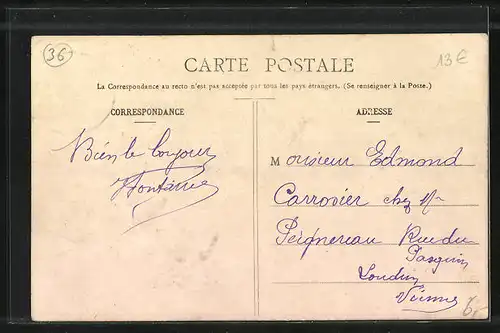 36
13€
CARTE POSTALE
La Correspondance au recto n'est pas acceptée par tous les pays étrangers. (Se renseigner à la Poste.)
CORRESPONDANCE
Bien le bonjour
Fontaine
ADRESSE
Monsieur Edmond
Carrossier chez Mr
Peignereau Rue du
Pasquin
Loudun
Vienne